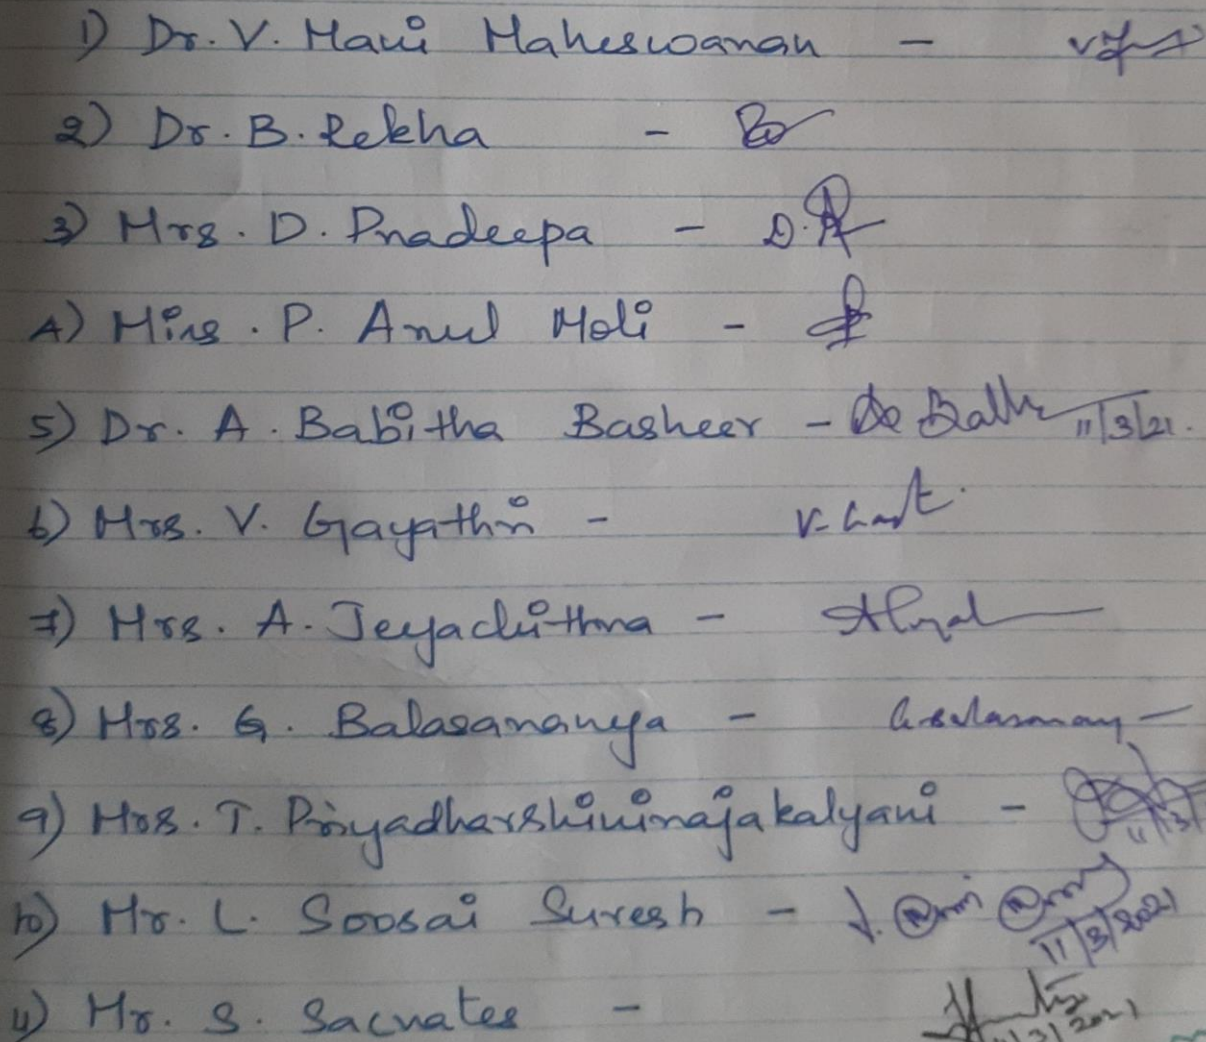 1) Dr. V. Mani Maheswaran -
2) Dr. B. Rekha -
3) Mrs. D. Pradeepa - D.
4) Miss. P. Arul Moli -
5) Dr. A. Babitha Basheer - 11/3/21.
6) Mrs. V. Gayathri - V.
7) Mrs. A. Jeyachithra -
8) Mrs. G. Balasaranya -
9) Mrs. T. Priyadharshinirajakalyani -
10) Mr. L. Soosai Suresh - 11/3/2021
11) Mr. S. Sacrates -